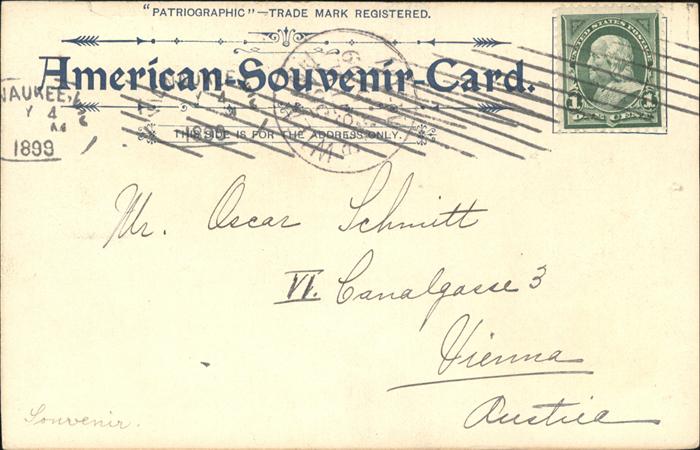 "PATRIOGRAPHIC"—TRADE MARK REGISTERED.
American-Souvenir-Card.
THIS SIDE IS FOR THE ADDRESS ONLY.
UNITED STATES POSTAGE
1 1
ONE CENT
WAUKEE,
Y 4
1899
Mr. Oscar Schmitt
VI. Canalgasse 3
Vienna
Austria
Souvenir.